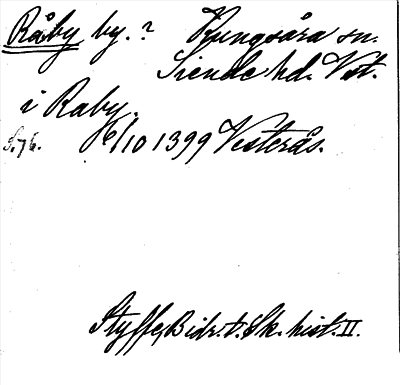 Råby by. ? Kungsåra sn.
Siende hd. Vst.
i Raby.
S. 76. 6/10 1399 Vesterås.
Styffe, Bidr. t. Sk. hist. II.